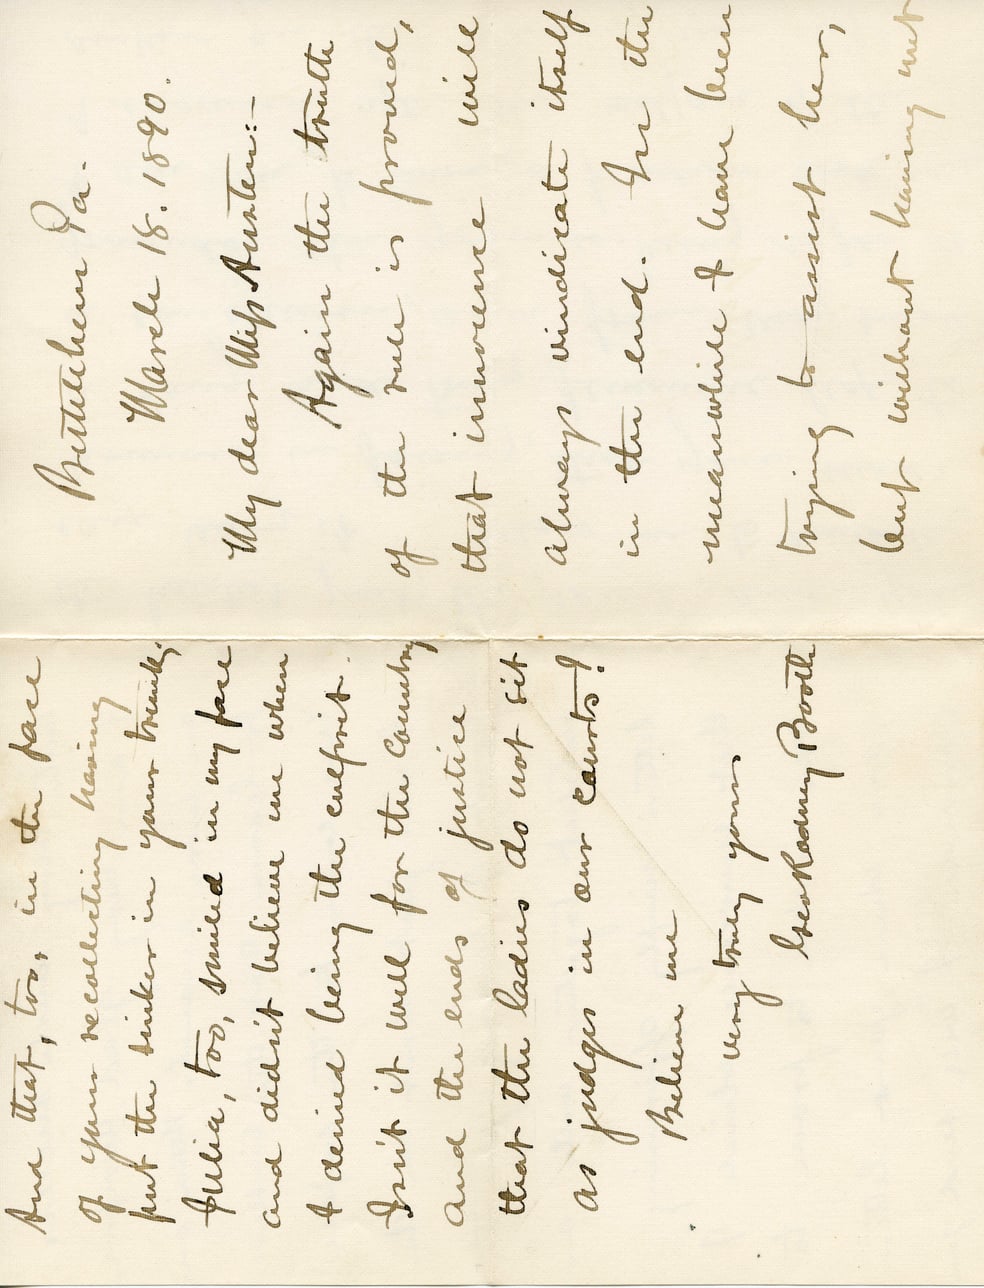 Bethlehem Pa.
March 18. 1890.
My dear Miss Austen:—
Again the truth
of the rule is proved,
that innocence will
always vindicate itself
in the end. In the
meanwhile I have been
trying to assist her,
but without having met
And that, too, in the face
of your recollecting having
put the sinker in your trunk.
Julia, too, smiled in my face
and didn't believe me when
I denied being the culprit.
Isn't it well for the Country
and the ends of justice
that the ladies do not sit
as judges in our courts?
Believe me
very truly yours
Geo Rodney Booth